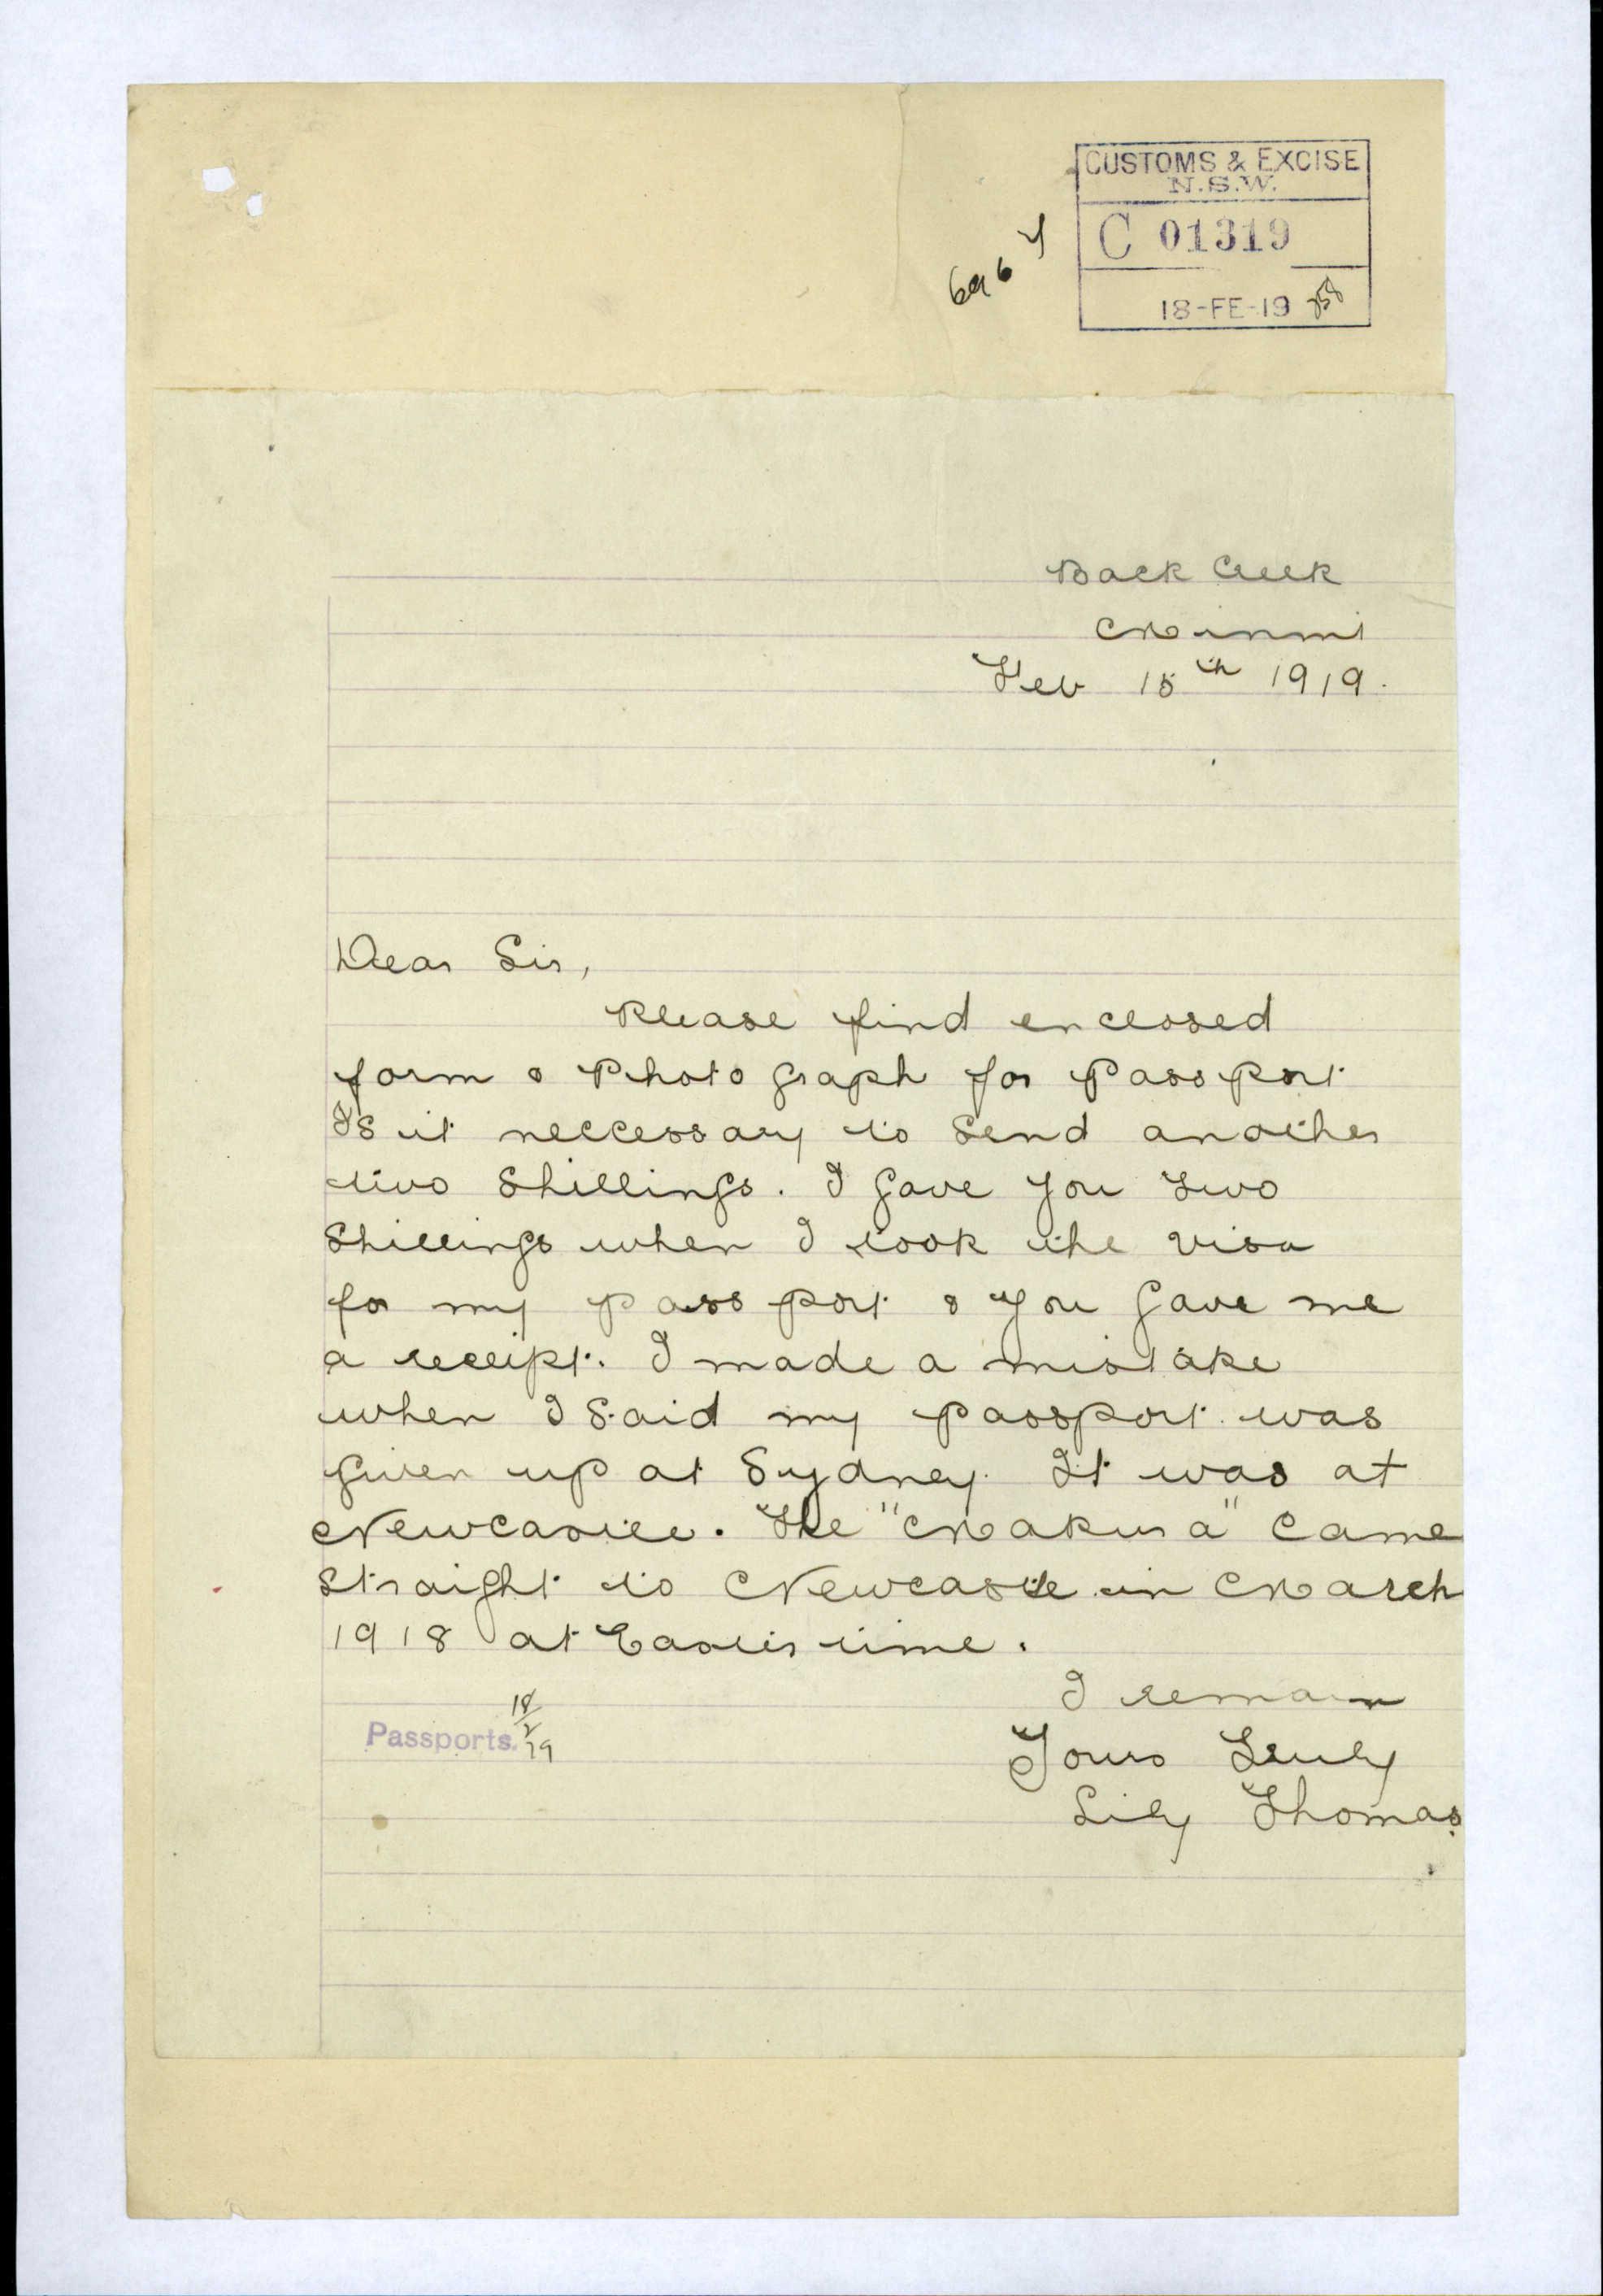 CUSTOMS & EXCISE
N.S.W.
C 01319
18-FE-19
Back Creek
Minmi
Feb 15th 1919.
Dear Sir,
Please find enclosed
form & Photograph for Passport
Is it neccessary to send another
two shillings. I gave you two
shillings when I took the visa
for my passport & you gave me
a receipt. I made a mistake
when I said my passport was
given up at Sydney. It was at
Newcastle. The "Makura" came
straight to Newcastle in March
1918 at Easter time.
I remain
Passports. 18/2/19
Yours Truly
Lily Thomas.